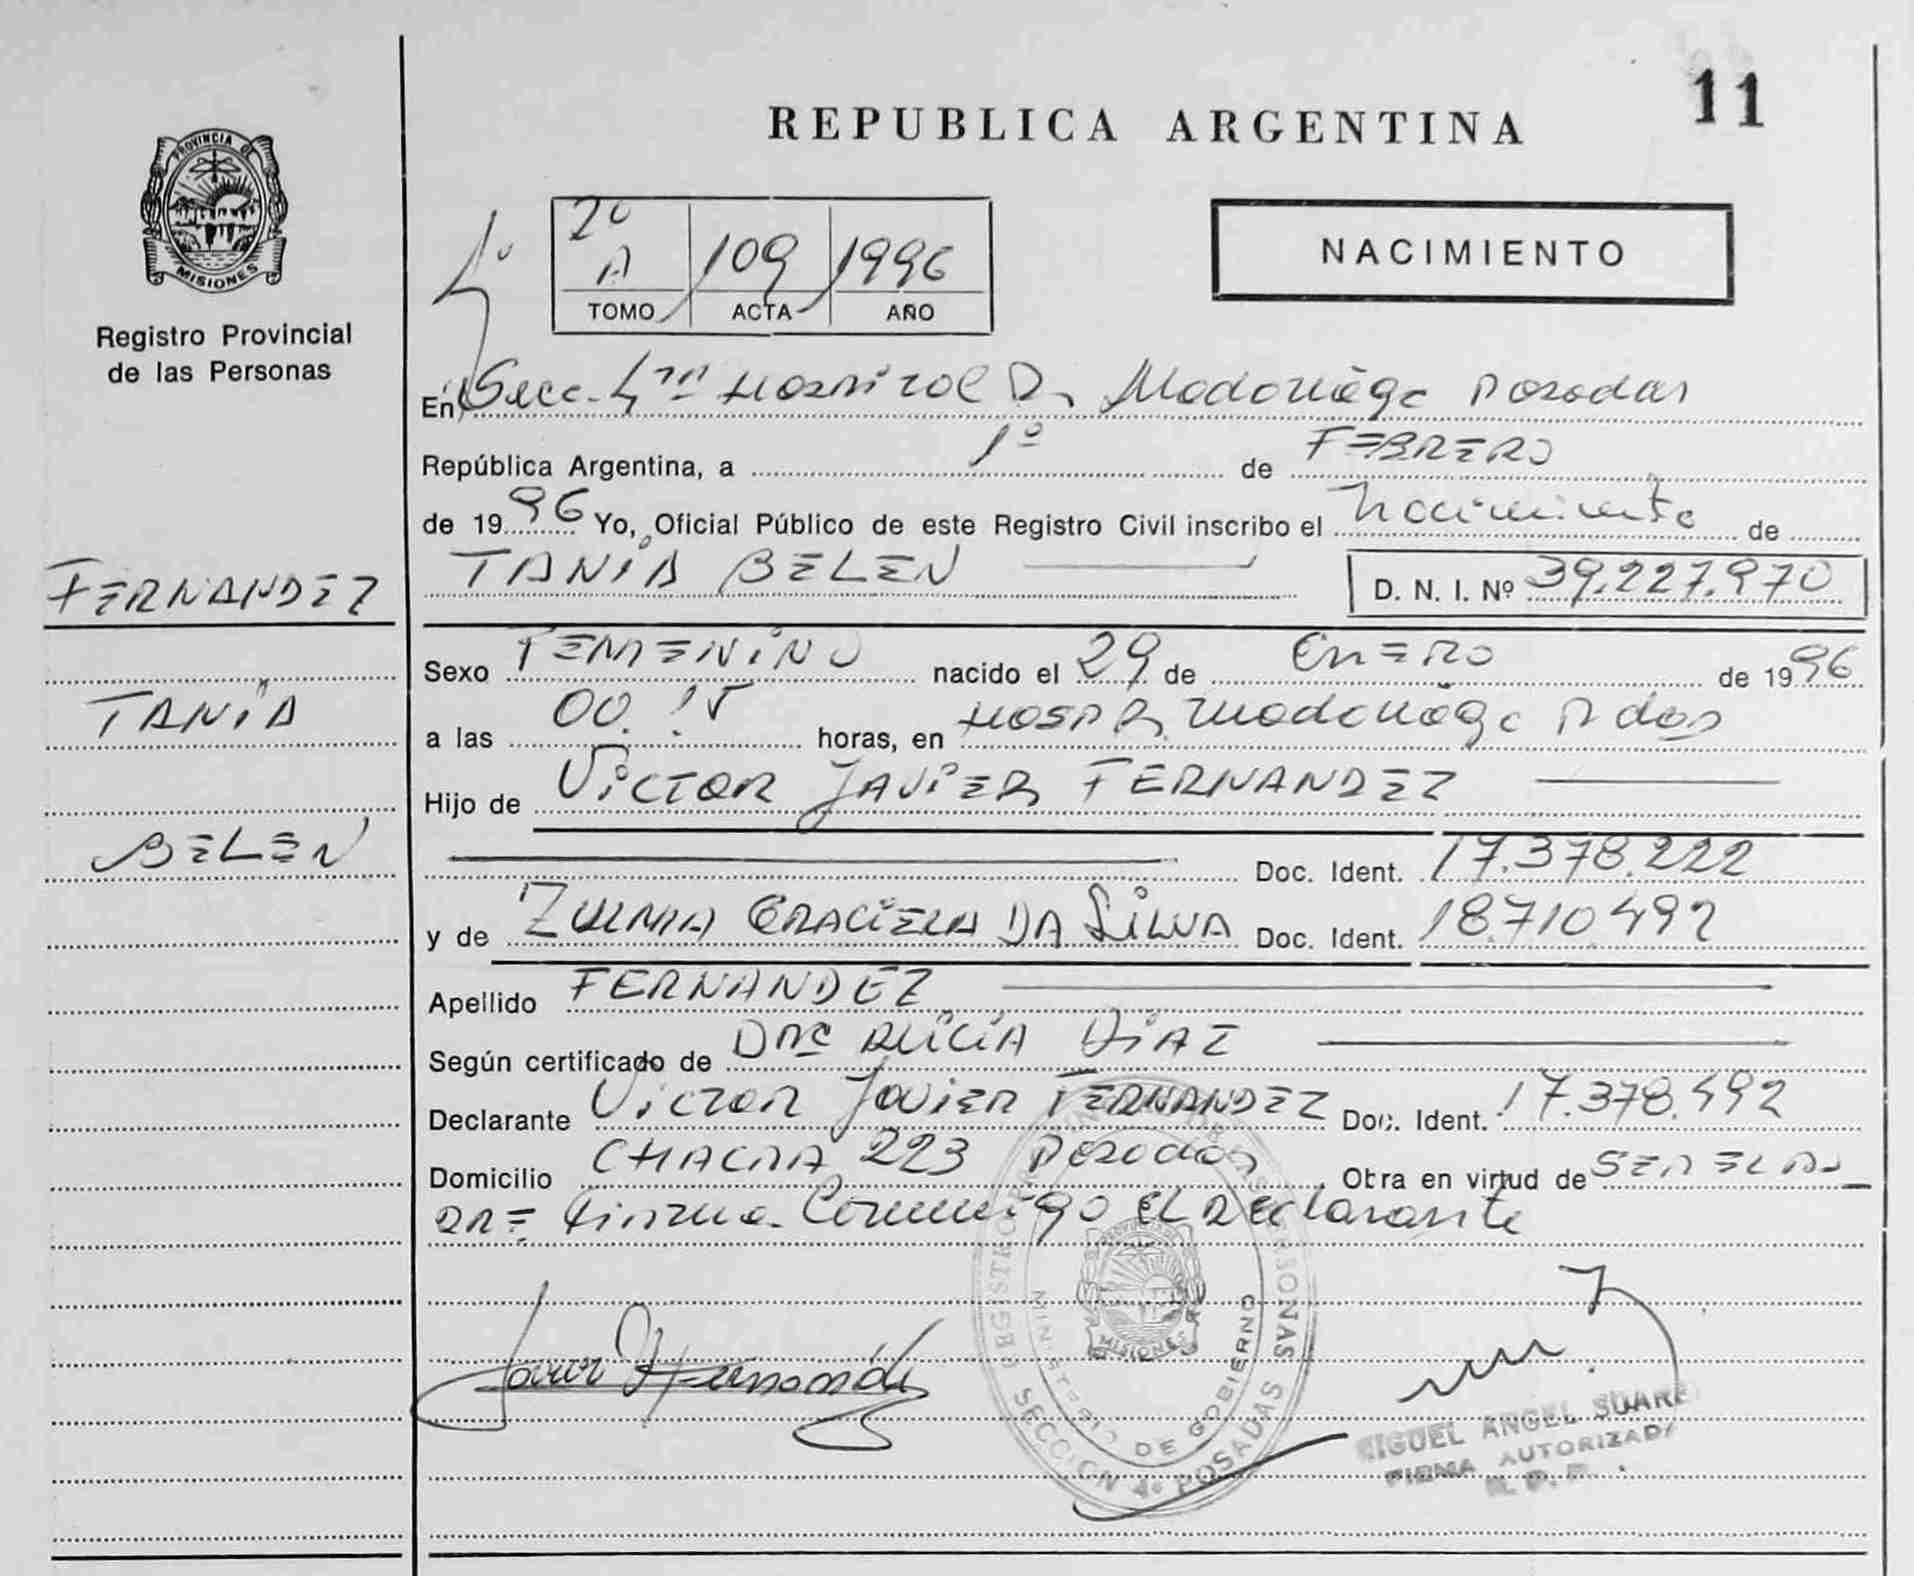 11
REPUBLICA ARGENTINA
PROVINCIA DE
MISIONES
Registro Provincial
de las Personas
4º
2º A 109 1996
TOMO ACTA AÑO
NACIMIENTO
En Secc. 4ta Hospital Dr Madariaga Posadas
República Argentina, a 1º de FEBRERO
de 1996 Yo, Oficial Público de este Registro Civil inscribo el Nacimiento de
TANIA BELEN D. N. I. Nº 39.227.970
FERNANDEZ
TANIA
BELEN
Sexo FEMENINO nacido el 29 de ENERO de 1996
a las 00.15 horas, en HOSP R. Madariaga Pdas
Hijo de VICTOR JAVIER FERNANDEZ
Doc. Ident. 17.378.222
y de ZULMA GRACIELA DA SILVA Doc. Ident. 18.710.492
Apellido FERNANDEZ
Según certificado de Dra ALICIA DIAZ
Declarante VICTOR JAVIER FERNANDEZ Doc. Ident. 17.378.492
Domicilio CHACRA 223 Posadas Otra en virtud de SER EL PA-
DRE Firma Conmigo EL Declarante
Javier Fernández
REGISTRO PROVINCIAL DE LAS PERSONAS
MINISTERIO DE GOBIERNO
MISIONES
SECCION 4º POSADAS
MIGUEL ANGEL SUARE
FIRMA AUTORIZADA
R. P. P.